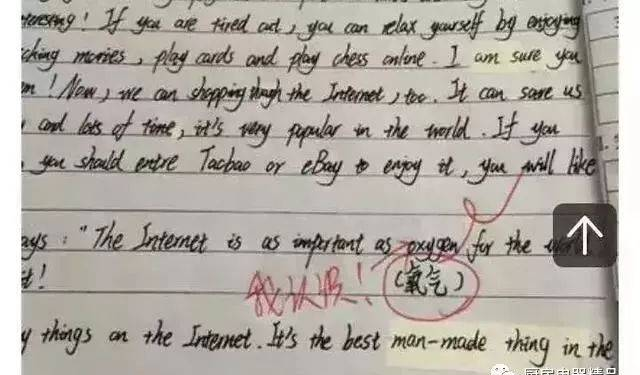 teresting! If you are tired out, you can relax yourself by enjoying
ching movies, play cards and play chess online. I am sure you
m! Now, we can shopping though the Internet, too. It can save us
and lots of time, it's very popular in the world. If you
you should entre Taobao or eBay to enjoy it, you will like
ays: "The Internet is as important as oxygen for the world
(氧气)
t!
我认服!
y things on the Internet. It's the best man-made thing in the
厨房电器精品